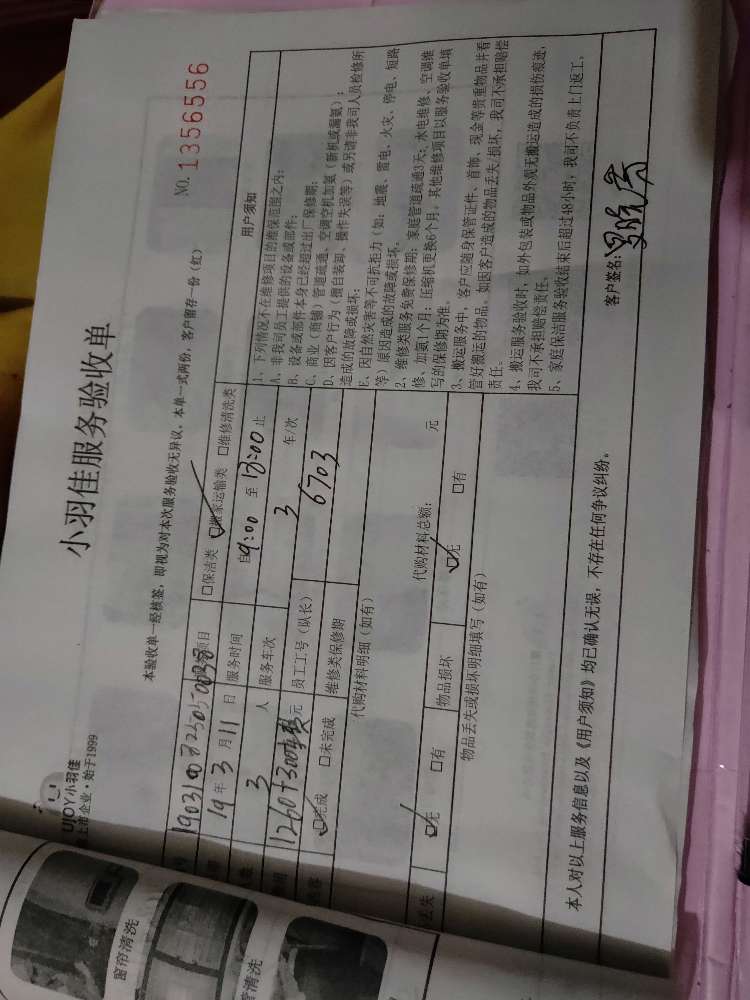 UJOY小羽佳
上市企业·始于1999
小羽佳服务验收单
NO. 1356556
本验收单一经核签，即视为对本次服务验收无异议，本单一式两份，客户留存一份（红）
项目 □保洁类 ☑搬家运输类 □维修清洗类
19年3月11日 服务时间 自9:00至18:00止
3人 服务车次 3车/次
元 员工工号（队长） 6703
☑完成 □未完成 维修类保修期
代购材料明细（如有）
代购材料总额： 元
丢失 ☑无 □有 物品损坏 ☑无 □有
物品丢失或损坏明细填写（如有）
用户须知
1、下列情况不在维修项目的维保范围之内：
A、非我司员工提供的设备或部件；
B、设备或部件本身已经超过出厂保修期；
C、商业（商铺）管道疏通、空调空机加氨（新机或漏氨）；
D、因客户行为（擅自装卸、操作失误等）或另请非我司人员检修所
造成的故障或损坏；
E、因自然灾害等不可抗拒力（如：地震、雷电、火灾、停电、短路
等）原因造成的故障或损坏。
2、维修类服务免费保修期：家庭管道疏通3天；水电维修、空调维
修、加氨1个月；压缩机更换6个月。其他维修项目以服务验收单填
写的保修期为准。
3、搬运服务中，客户应随身保管证件、首饰、现金等贵重物品并看
管好搬运的物品。如因客户造成的物品丢失、损坏，我司不承担赔偿
责任。
4、搬运服务验收时，如外包装或物品外观无搬运造成的损伤痕迹，
我司不承担赔偿责任。
5、家庭保洁服务验收结束后超过48小时，我司不负责上门返工。
本人对以上服务信息以及《用户须知》均已确认无误，不存在任何争议纠纷。
客户签名：
窗帘清洗
清洗